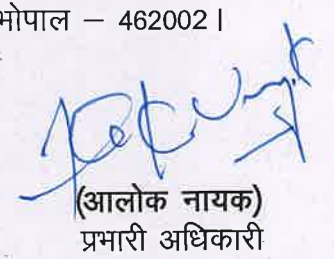 भोपाल – 462002।
(आलोक नायक)
प्रभारी अधिकारी